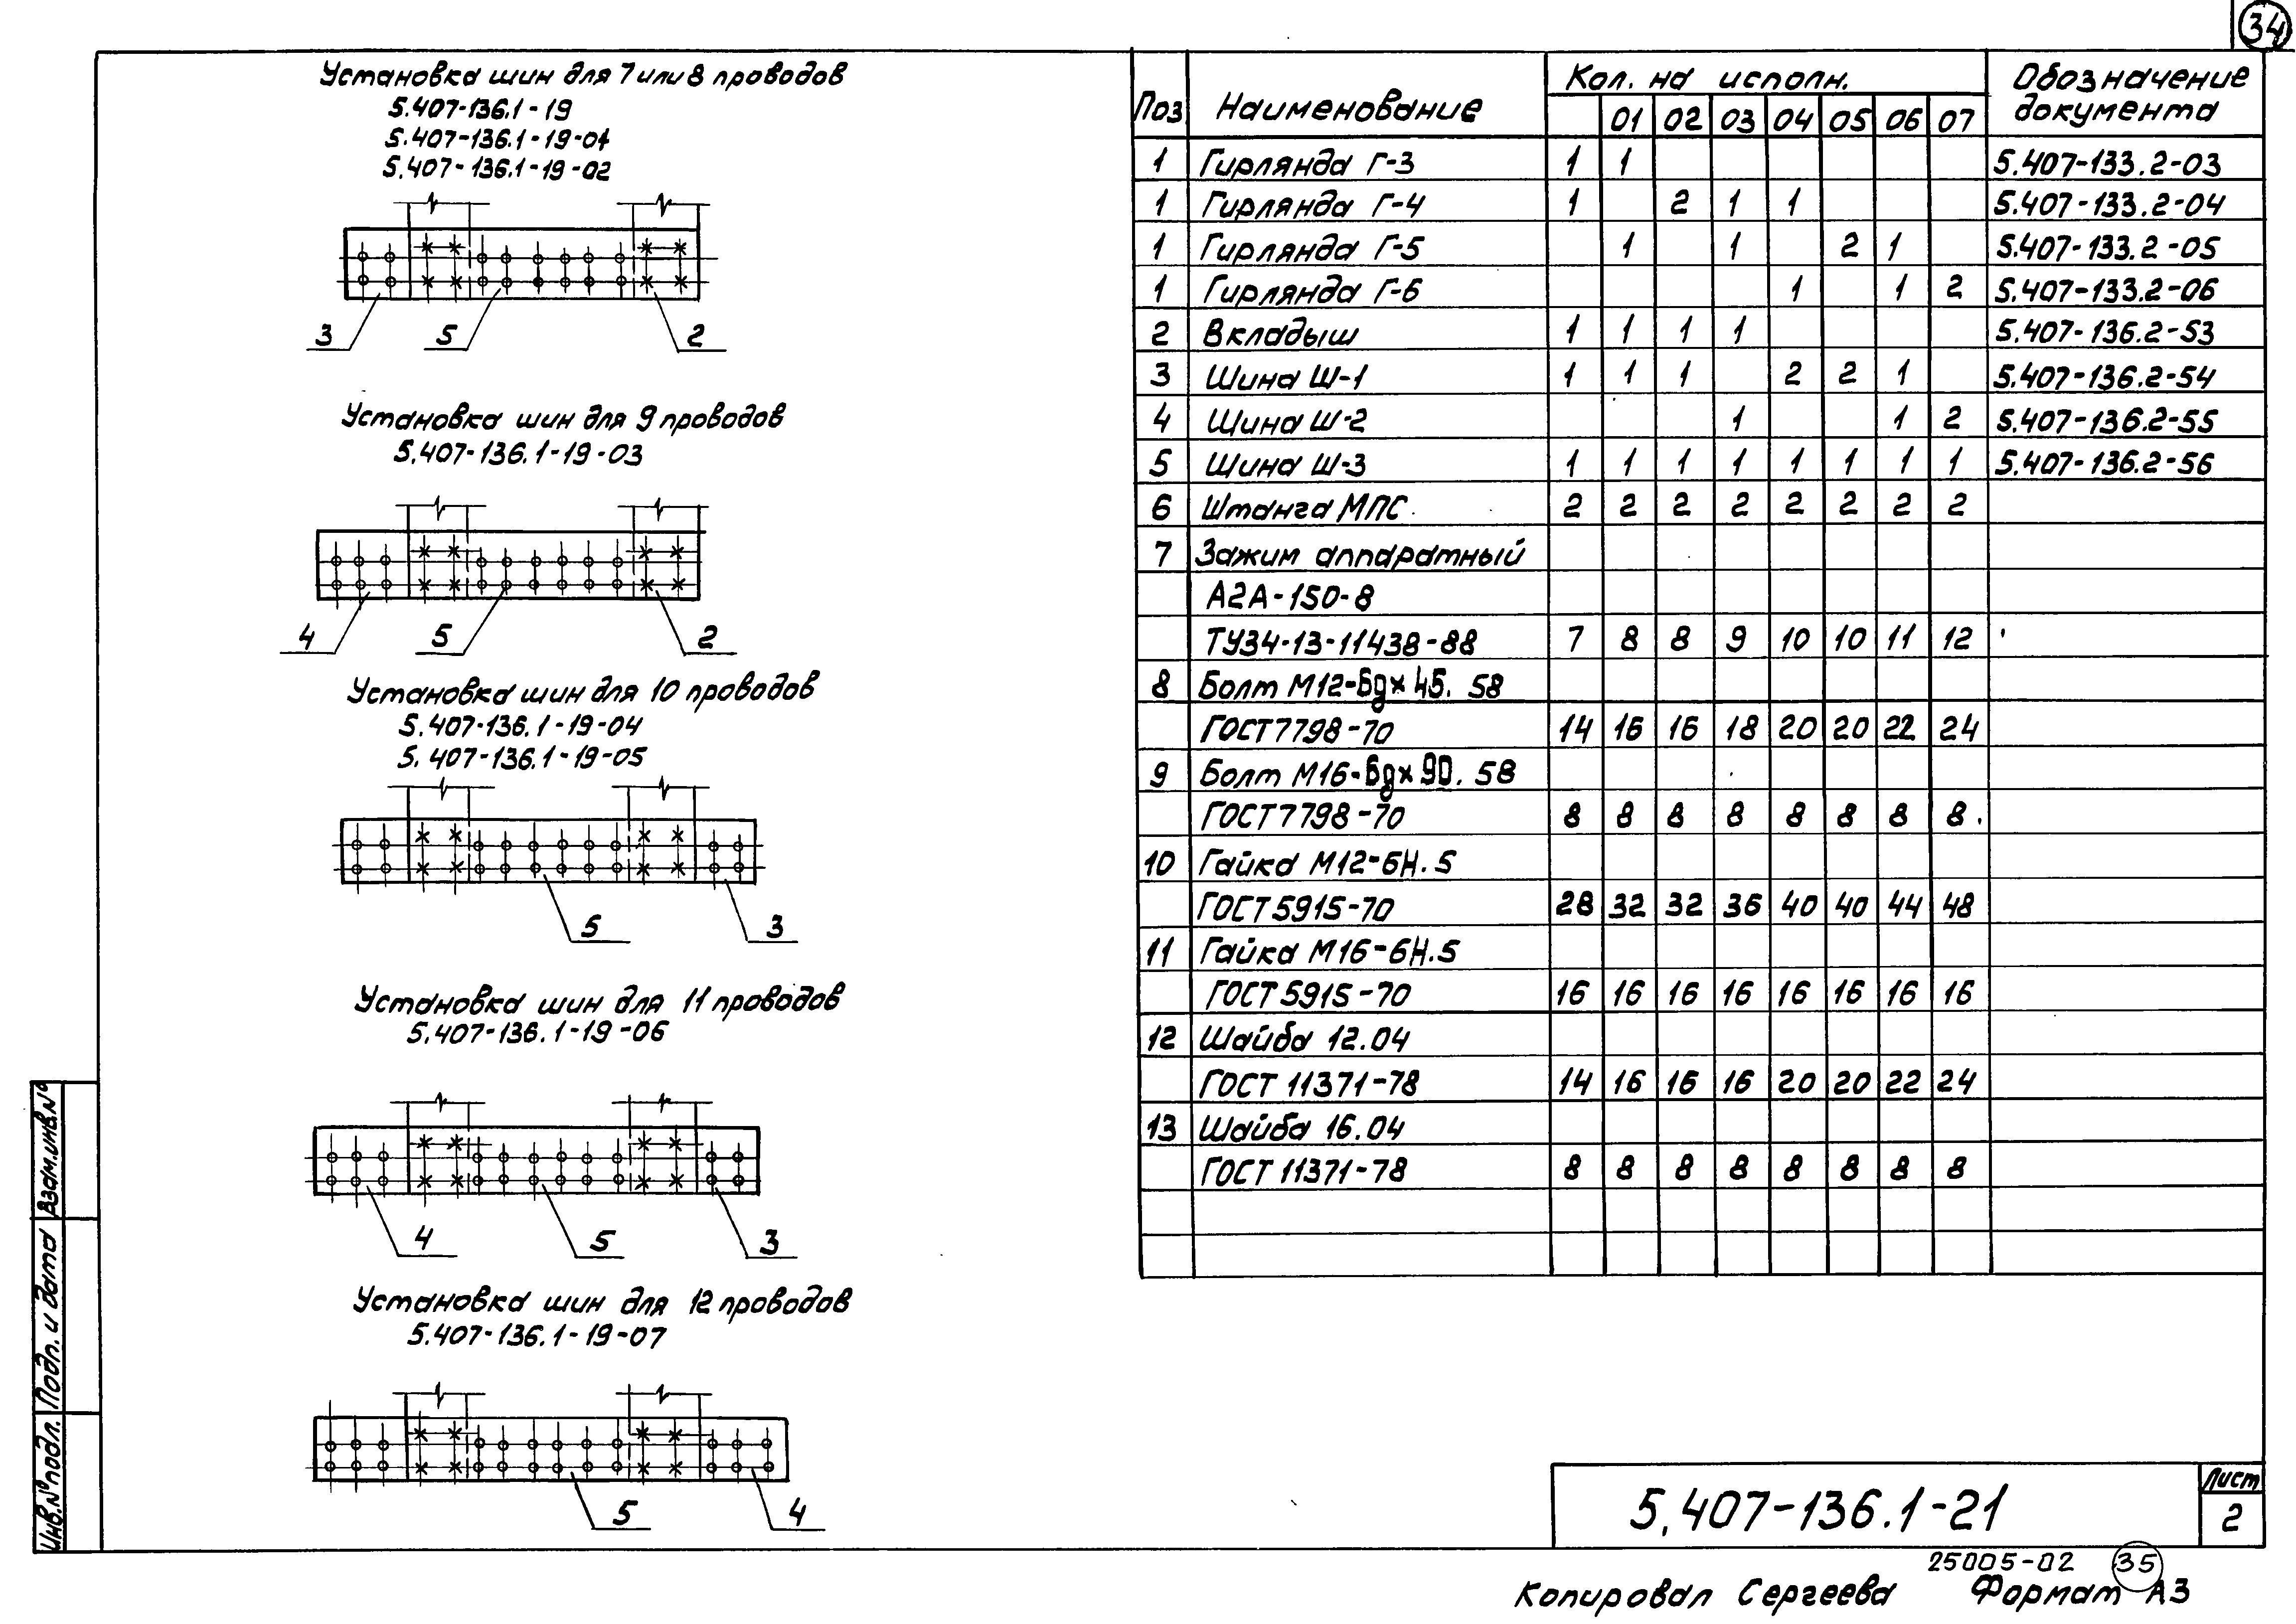 34
Установка шин для 7 или 8 проводов
5.407-136.1-19
5.407-136.1-19-01
5.407-136.1-19-02
3 5 2
Установка шин для 9 проводов
5.407-136.1-19-03
4 5 2
Установка шин для 10 проводов
5.407-136.1-19-04
5.407-136.1-19-05
5 3
Установка шин для 11 проводов
5.407-136.1-19-06
4 5 3
Установка шин для 12 проводов
5.407-136.1-19-07
5 4
Поз Наименование Кол. на исполн. Обозначение документа
01 02 03 04 05 06 07
1 Гирлянда Г-3 1 1 5.407-133.2-03
1 Гирлянда Г-4 1 2 1 1 5.407-133.2-04
1 Гирлянда Г-5 1 1 2 1 5.407-133.2-05
1 Гирлянда Г-6 1 1 2 5.407-133.2-06
2 Вкладыш 1 1 1 1 5.407-136.2-53
3 Шина Ш-1 1 1 1 2 2 1 5.407-136.2-54
4 Шина Ш-2 1 1 2 5.407-136.2-55
5 Шина Ш-3 1 1 1 1 1 1 1 1 5.407-136.2-56
6 Штанга МПС 2 2 2 2 2 2 2 2
7 Зажим аппаратный
А2А-150-8
ТУ34-13-11438-88 7 8 8 9 10 10 11 12
8 Болт М12-6gх45.58
ГОСТ7798-70 14 16 16 18 20 20 22 24
9 Болт М16-6gх90.58
ГОСТ7798-70 8 8 8 8 8 8 8 8
10 Гайка М12-6Н.5
ГОСТ5915-70 28 32 32 36 40 40 44 48
11 Гайка М16-6Н.5
ГОСТ5915-70 16 16 16 16 16 16 16 16
12 Шайба 12.04
ГОСТ 11371-78 14 16 16 16 20 20 22 24
13 Шайба 16.04
ГОСТ 11371-78 8 8 8 8 8 8 8 8
Инв.№подл. Подп. и дата Взам.инв.№
5.407-136.1-21
Лист
2
25005-02 35
Копировал Сергеева Формат А3